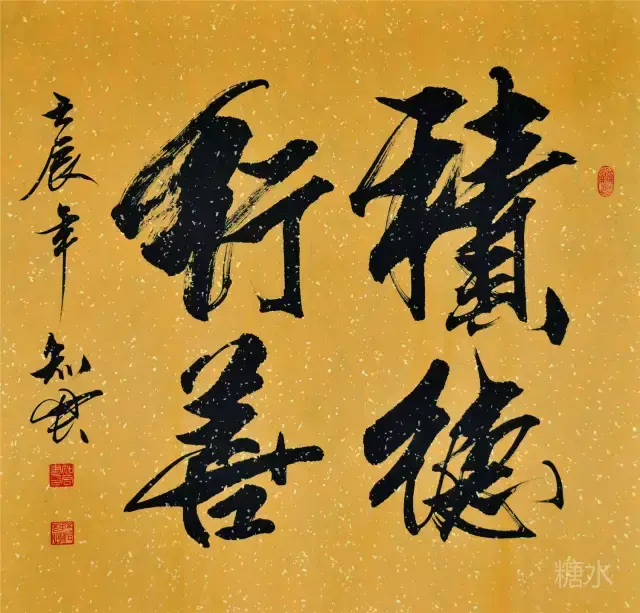 積德
行善
壬辰年
糖水